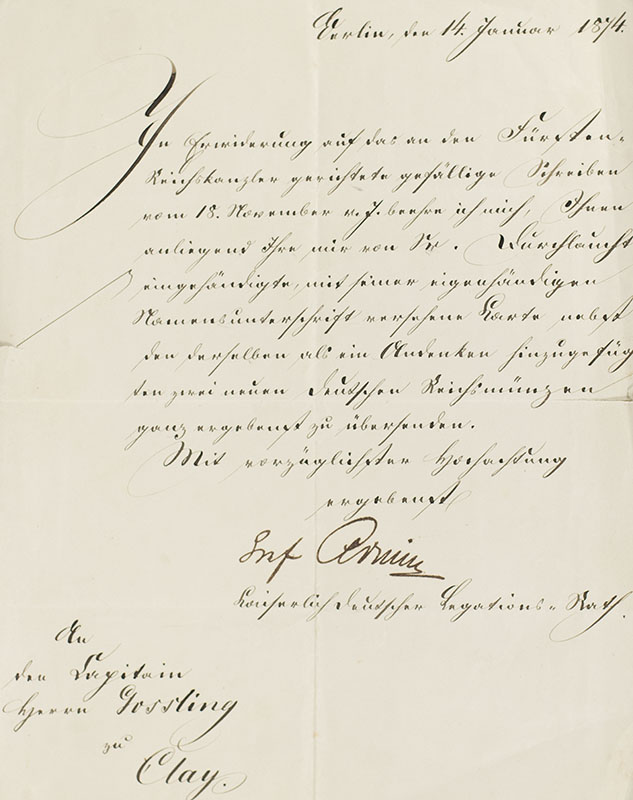 Berlin, den 14. Januar 1874.
In Erwiderung auf das an den Fürsten-
Reichskanzler gerichtete gefällige Schreiben
vom 18. November v. J. beehre ich mich, Ihnen
anliegend Ihre mir von Sr. Durchlaucht
eingehändigte, mit seiner eigenhändigen
Namensunterschrift versehene Karte nebst
den derselben als ein Andenken hinzugefüg
ten zwei neuen deutschen Reichsmünzen
ganz ergebenst zu übersenden.
Mit vorzüglichster Hochachtung
ergebenst
Kaiserlich deutscher Legations-Rath.
An
den Capitain
Herrn Gossling
zu
Clay.